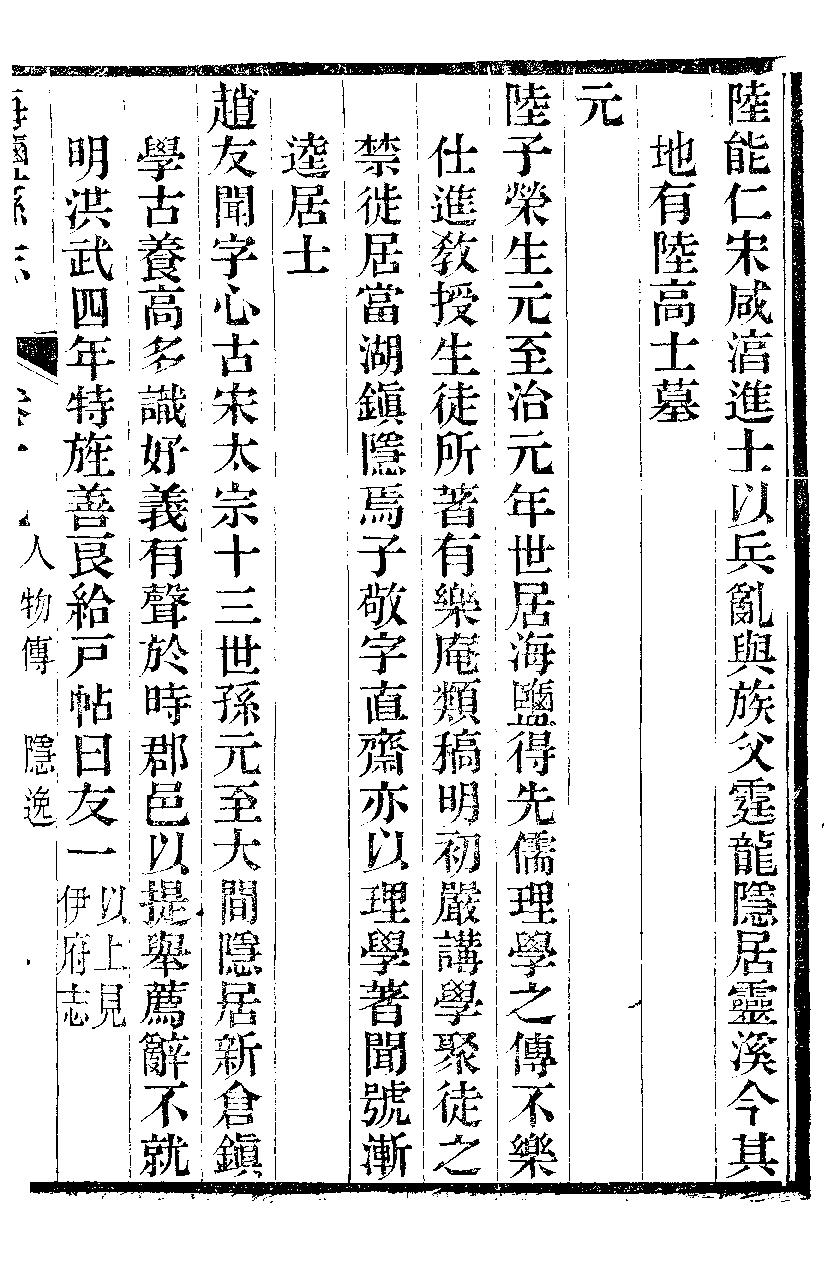 陸能仁宋咸淳進士以兵亂與族父霆龍隱居靈溪今其
地有陸高士墓
元
陸子榮生元至治元年世居海鹽得先儒理學之傳不樂
仕進敎授生徒所著有樂庵類稿明初嚴講學聚徒之
禁徙居當湖鎭隱焉子敬字直齋亦以理學著聞號漸
逵居士
趙友聞字心古宋太宗十三世孫元至大間隱居新倉鎭
學古養高多識好義有聲於時郡邑以提舉薦辭不就
明洪武四年特旌善良給戸帖曰友一
以上見
伊府志
海鹽縣志
人物傳 隱逸